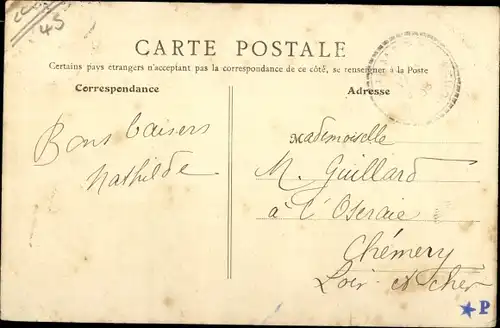 45
CARTE POSTALE
Certains pays étrangers n'acceptant pas la correspondance de ce côté, se renseigner à la Poste
Correspondance
Adresse
Bons baisers
Mathilde
Mademoiselle
M. Guillard
à l'Oseraie
Chémery
Loir et Cher
★P